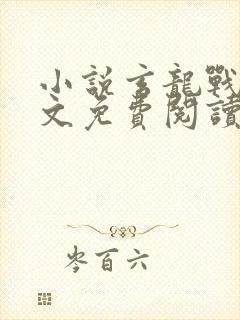 小說玄龍戰
文免費閱讀
岑百六